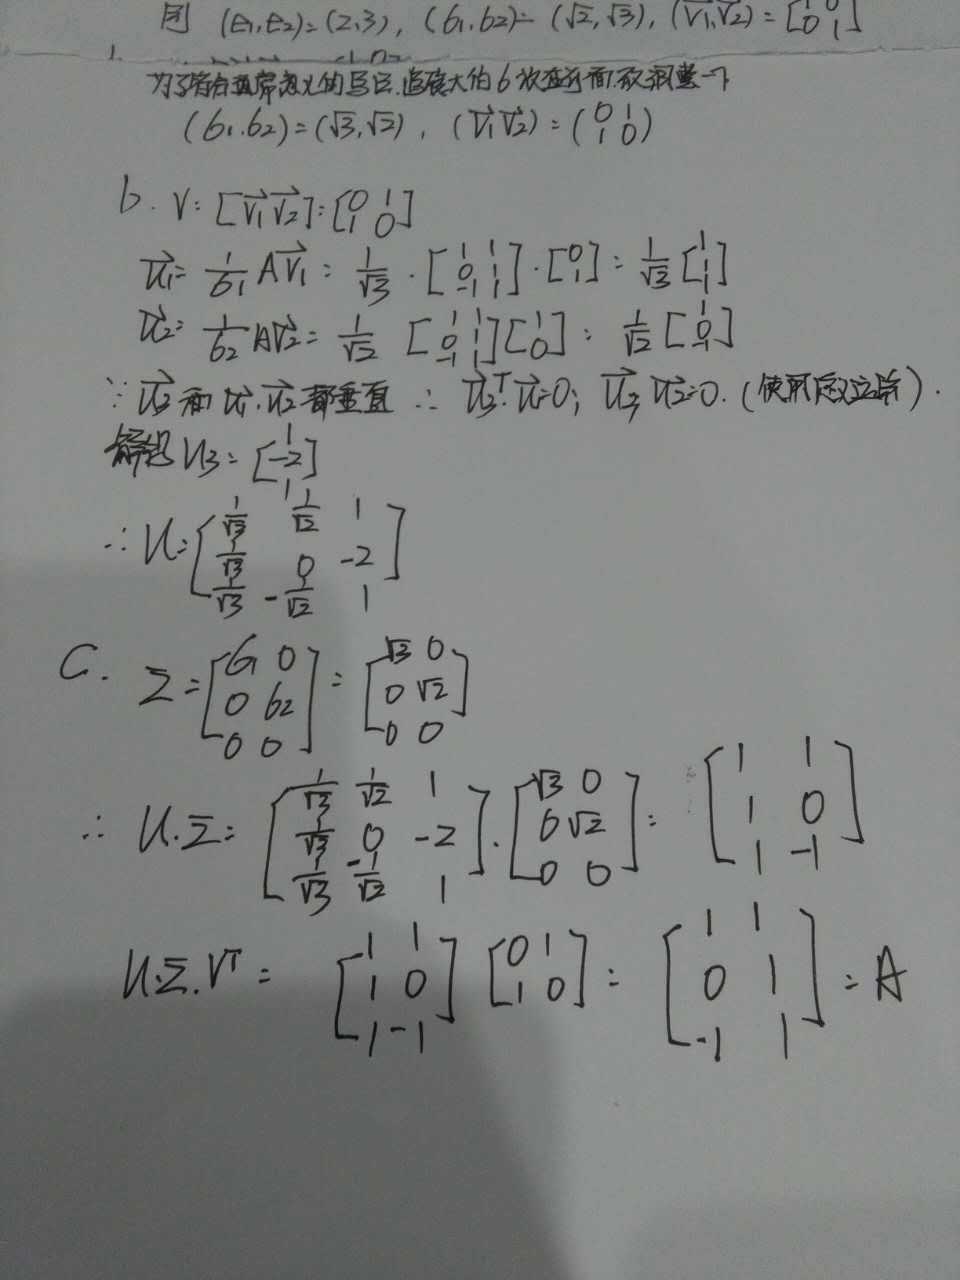 则 (E₁,E₂)=(2,3), (σ₁,σ₂)=(√2,√3), (v₁⃗,v₂⃗)=[1 0; 0 1]
为了符合通常意义的写法,
(σ₁,σ₂)=(√3,√2), (v₁⃗ v₂⃗)=(0 1; 1 0)
b. V=[v₁⃗ v₂⃗]=[0 1; 1 0]
u₁⃗=1/σ₁ Av₁⃗=1/√3·[1 1; 0 1; -1 1]·[0; 1]=1/√3[1; 1; 1]
u₂⃗=1/σ₂ Av₂⃗=1/√2 [1 1; 0 1; -1 1][1; 0]=1/√2[1; 0; -1]
∵u₃⃗和u₁⃗,u₂⃗都垂直 ∴u₃⃗ᵀ·u₁⃗=0; u₃⃗ u₂⃗=0.
解得U₃=[1; -2; 1]
∴U=[1/√3 1/√2 1; 1/√3 0 -2; 1/√3 -1/√2 1]
C. Σ=[σ₁ 0; 0 σ₂; 0 0]=[√3 0; 0 √2; 0 0]
∴U·Σ=[1/√3 1/√2 1; 1/√3 0 -2; 1/√3 -1/√2 1]·[√3 0; 0 √2; 0 0]=[1 1; 1 0; 1 -1]
U·Σ·Vᵀ=[1 1; 1 0; 1 -1][0 1; 1 0]=[1 1; 0 1; -1 1]=A